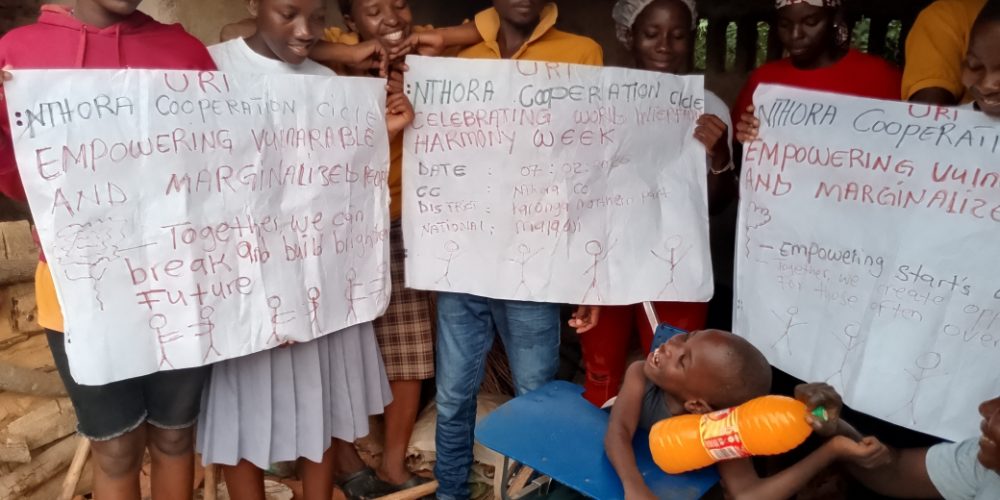 URI
:NTHORA COOPERATION CiCLE
EMPOWERING VUNARABLE
AND MARGINALISED
Together, we can
break and build brighter
Future
URI
:NTHORA COOPERATION CICLE
CELEBRATING WORLD
HARMONY WEEK
DATE : 07:02:
CC :
DISTRICT : Karonga northern part
NATIONAL : malawi
URI
NTHORA COOPERATI
EMPOWERING VULN
AND MARGINALIZE
Empowering start's
Together, we create opp
for those often over